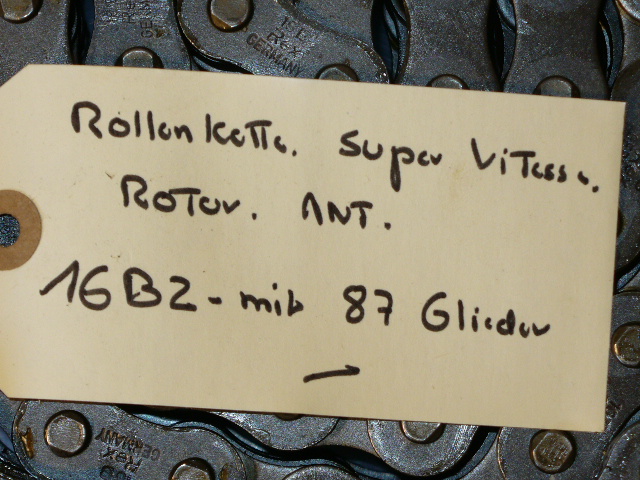 REX
GERMANY
Rollenkette. Super Vitesse.
Rotor. ANT.
16B2-mit 87 Glieder
REX
GERMANY